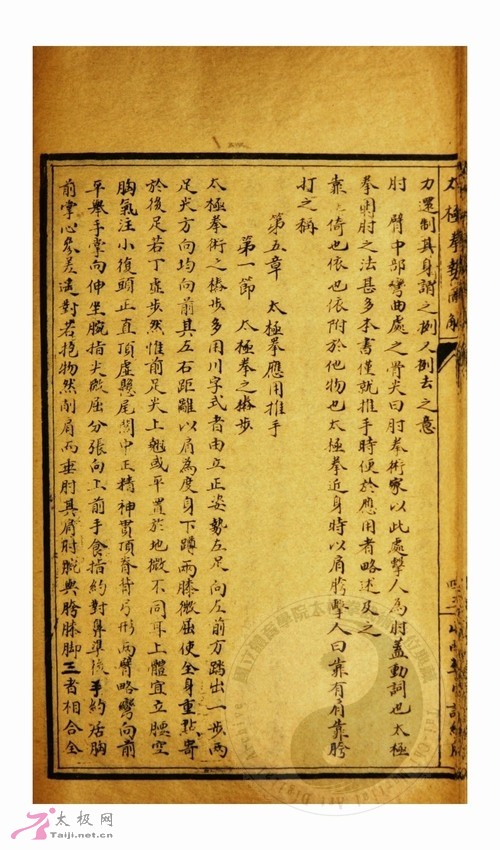 力還制其身謂之挒人挒去之意
肘　臂中部彎曲處之骨尖曰肘拳術家以此處擊人為肘蓋動詞也太極
拳用肘之法甚多本書僅就推手時便於應用者略述及之
靠　倚也依也依附於他物也太極拳近身時以肩胯擊人曰靠有肩靠胯
打之稱
第五章　太極拳應用推手
第一節　太極拳之樁步
太極拳術之樁步多用川字式者由立正姿勢左足向左前方踏出一步兩
足尖方向均向前其左右距離以肩為度身下蹲兩膝微屈使全身重點寄
於後足若丁虛步然惟前足尖上翹或平置於地微不同耳上體宜立腰空
胸氣注小復頭正直頂虛懸尾閭中正精神貫頂脊背弓形兩臂略彎向前
平舉手掌向伸坐腕指尖微屈分張向上前手食指約對鼻準後手約居胸
前掌心參差遙對若抱物然削肩而垂肘其肩肘腕與胯膝脚三者相合全
太極拳勢圖解
太极网
Taiji.net.cn